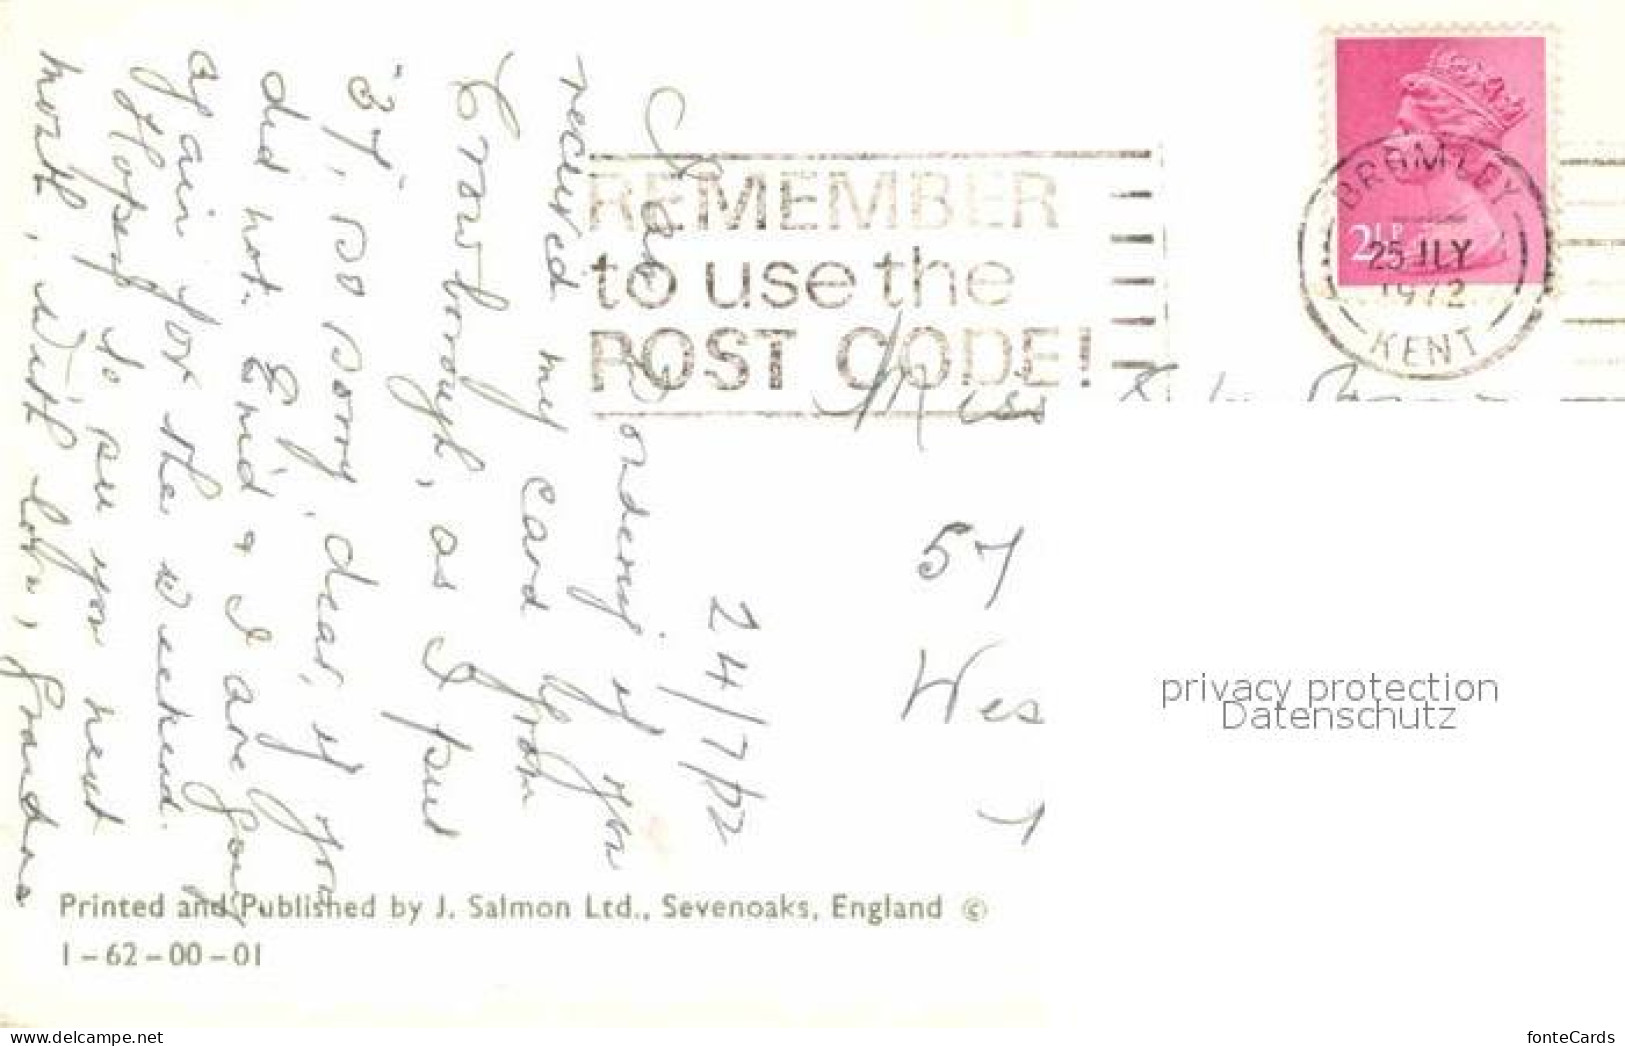 24/7/72
I am wondering if you
received my card from
Crowborough, as I put
"37", so sorry, dear, if you
did not. Enid & I are going
again for the weekend.
Hope to see you next
month, with love, Grandma
REMEMBER
to use the
POST CODE!
BROMLEY
25 JLY
1972
KENT
2½P
Miss
57
Wes
privacy protection
Datenschutz
Printed and Published by J. Salmon Ltd., Sevenoaks, England ©
1-62-00-01
www.delcampe.net
fonteCards